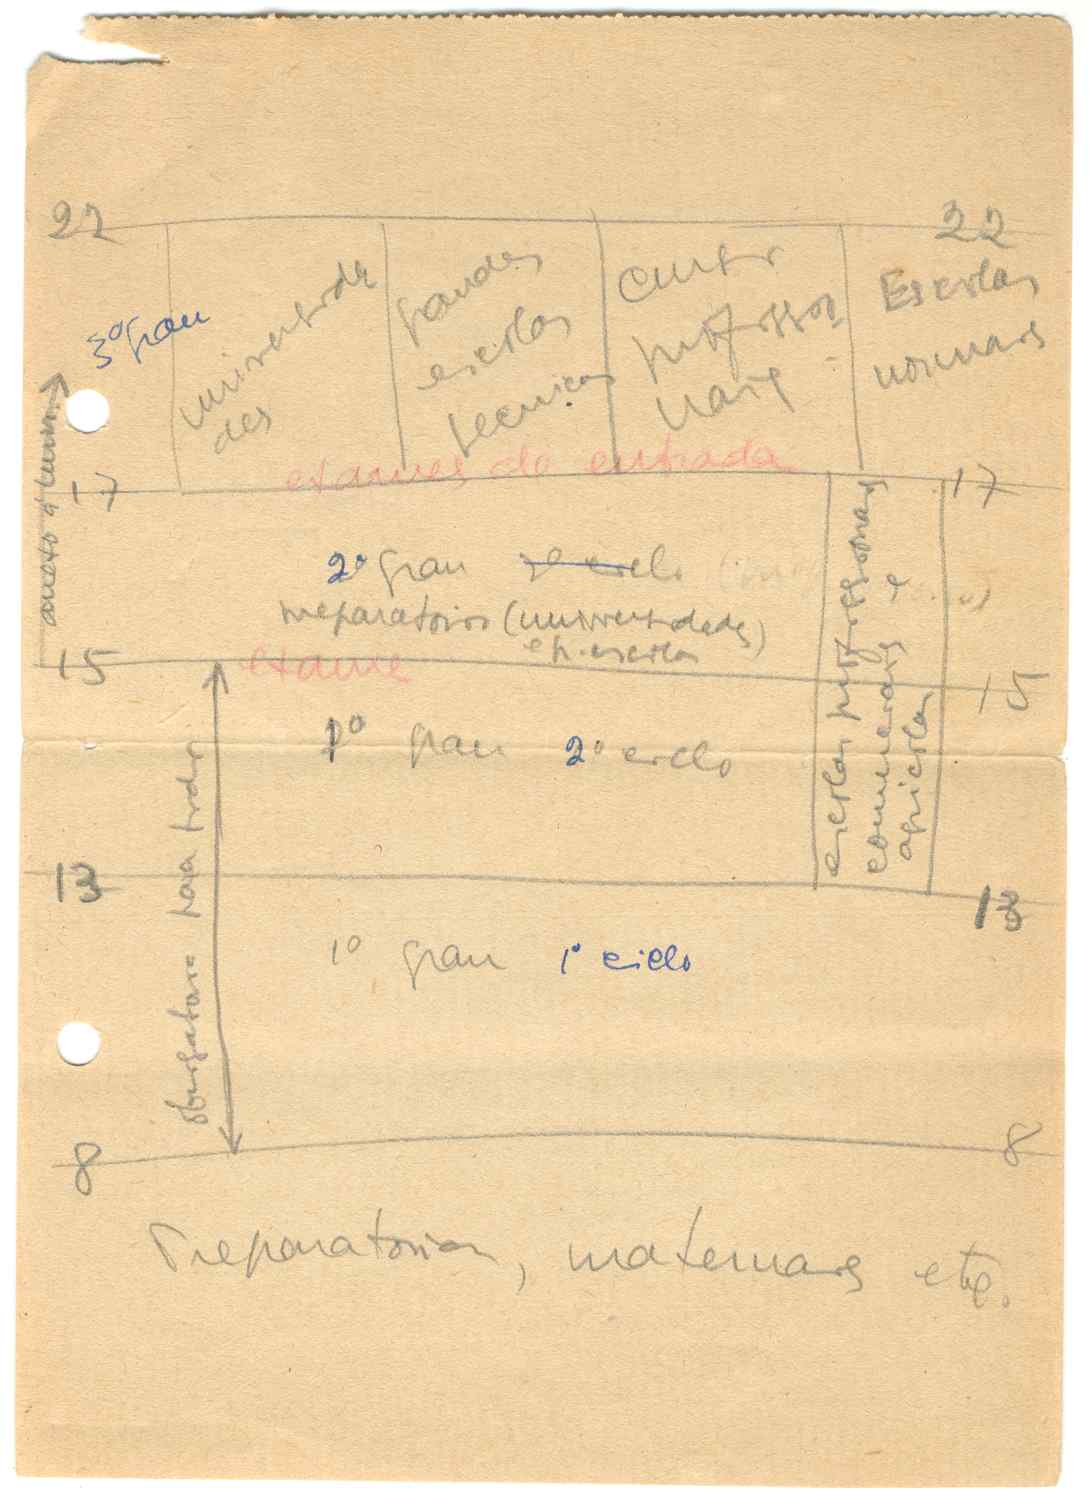 22
22
3º grau
universida
des
grandes
escolas
tecnicas
cursos
profissio
nais
Escolas
normais
exames de entrada
17
17
2º grau 2º ciclo
preparatorios (universidades)
e p. escolas
exame
15
15
1º grau 2º ciclo
escolas profissionais
e
comerciais
agricolas
obrigatorio para todos
13
13
1º grau 1º ciclo
8
8
Preparatorias, maternais etc.